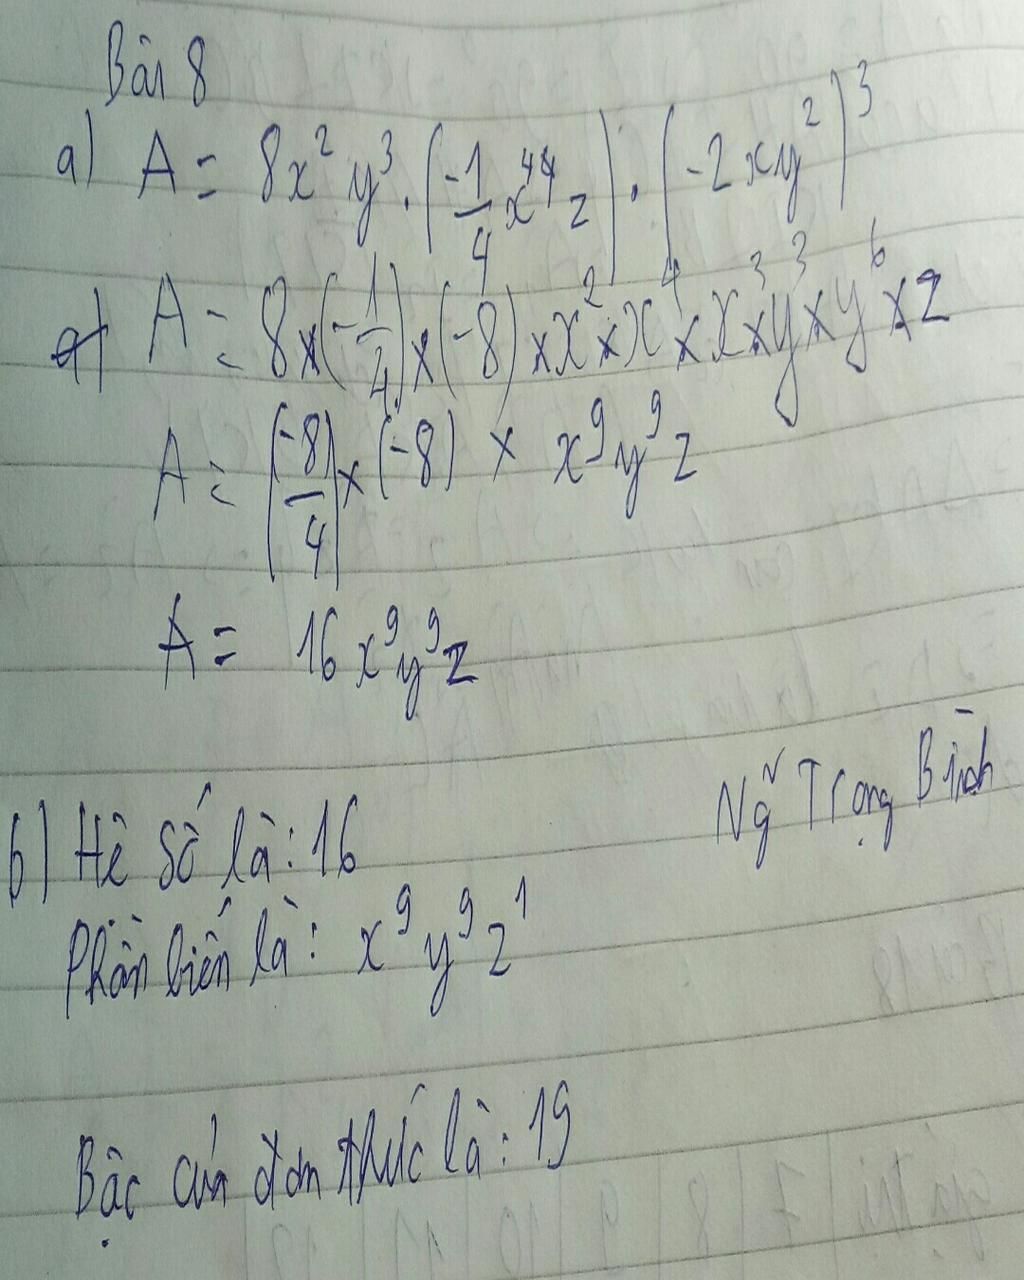 Bài 8
a) A = 8x² y³ . (-1/4 x⁴⁴ z) . (-2xy²)³
a) A = 8×(-1/4)×(-8)×x²×x⁴×x³×y³×y⁶×z
A = (-8/4)×(-8) × x⁹y⁹z
A = 16x⁹y⁹z
Ngỹ Trọng Bình
b) Hê số là: 16
Phần biến là: x⁹ y⁹ z¹
Bậc của đơn thức là: 19